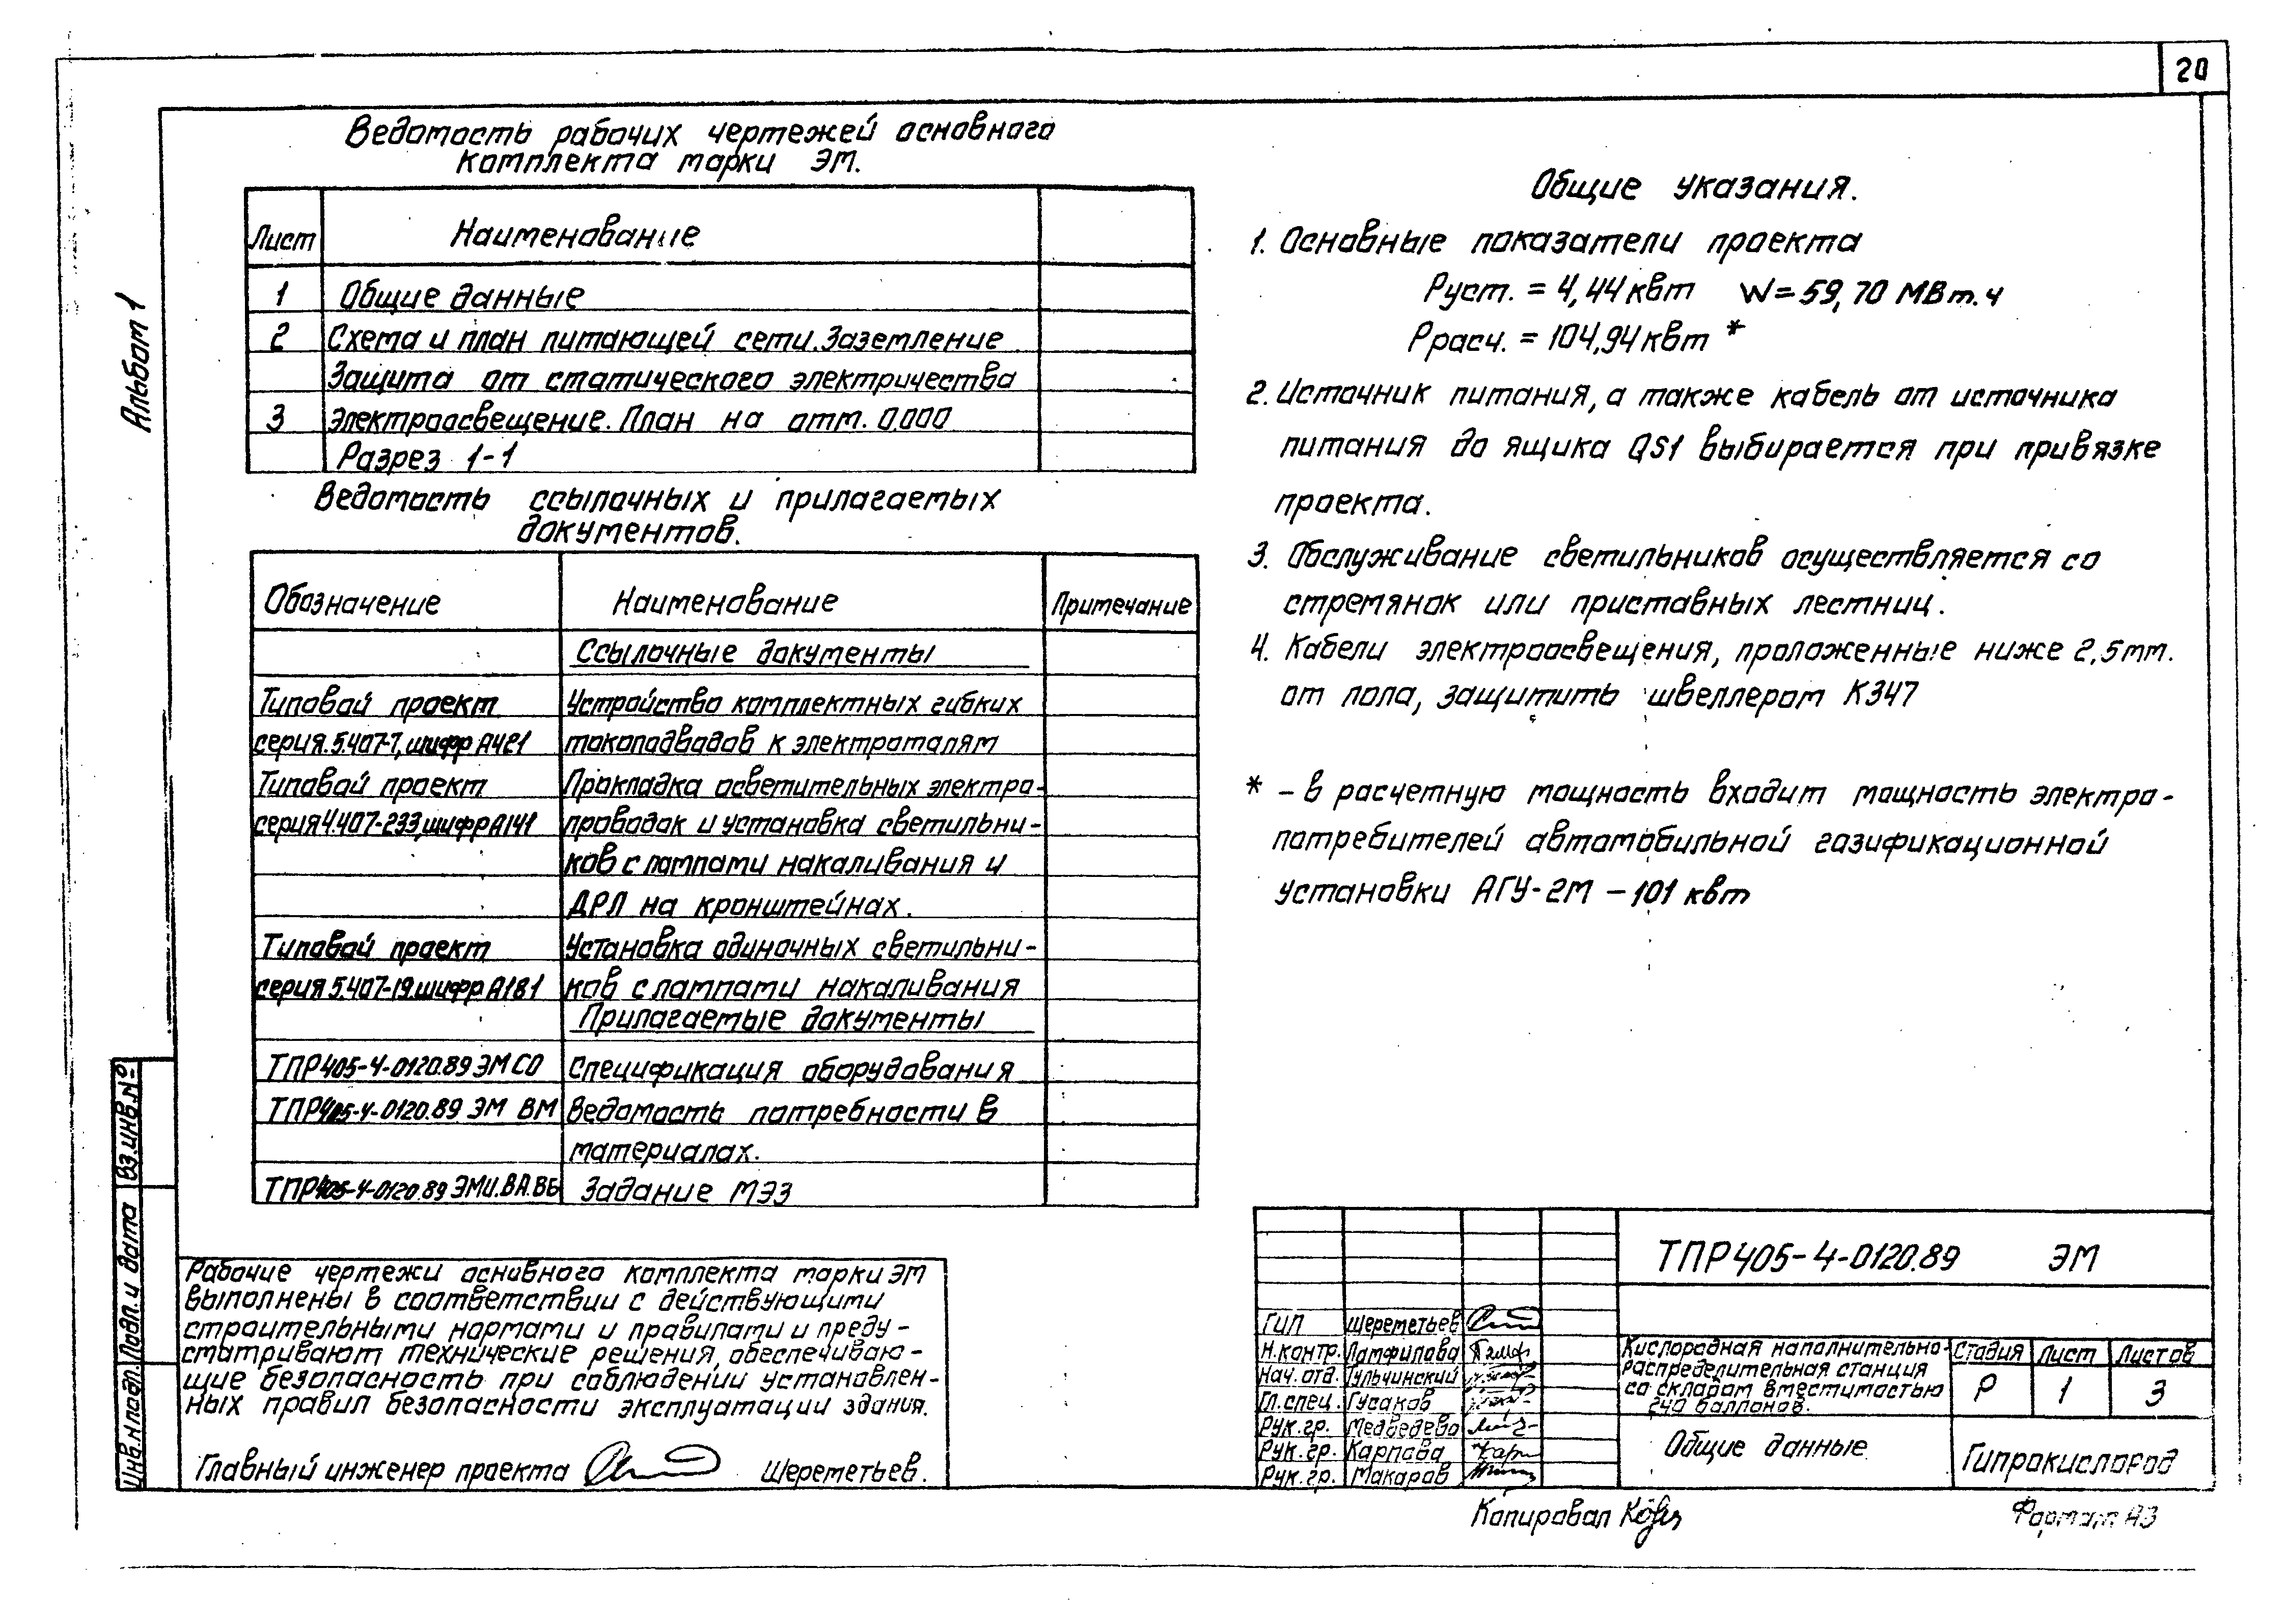 20
Альбом 1
Ведомость рабочих чертежей основного
комплекта марки ЭМ.
Лист Наименование
1 Общие данные
2 Схема и план питающей сети. Заземление
Защита от статического электричества
3 Электроосвещение. План на отм. 0.000
Разрез 1-1
Ведомость ссылочных и прилагаемых
документов.
Обозначение Наименование Примечание
Ссылочные документы
Типовой проект Устройство комплектных гибких
серия.5.407-7, шифр А421 токоподводов к электроталям
Типовой проект Прокладка осветительных электро-
серия 4.407-233, шифр А141 проводок и установка светильни-
ков с лампами накаливания и
ДРЛ на кронштейнах.
Типовой проект Установка одиночных светильни-
серия 5.407-19. шифр А181 ков с лампами накаливания
Прилагаемые документы
ТПР 405-4-0120.89 ЭМ СО Спецификация оборудования
ТПР 405-4-0120.89 ЭМ ВМ Ведомость потребности в
материалах.
ТПР 405-4-0120.89 ЭМИ.ВА.ВБ Задание МЭЗ
Общие указания.
1. Основные показатели проекта
Руст. = 4,44 квт W = 59,70 МВт.ч
Ррасч. = 104,94 квт *
2. Источник питания, а также кабель от источника
питания до ящика QS1 выбирается при привязке
проекта.
3. Обслуживание светильников осуществляется со
стремянок или приставных лестниц.
4. Кабели электроосвещения, проложенные ниже 2,5 мм.
от пола, защитить швеллером К347
* - в расчетную мощность входит мощность электро-
потребителей автомобильной газификационной
установки АГУ-2М - 101 квт
Рабочие чертежи основного комплекта марки ЭМ
выполнены в соответствии с действующими
строительными нормами и правилами и преду-
сматривают технические решения, обеспечиваю-
щие безопасность при соблюдении установлен-
ных правил безопасности эксплуатации здания.
Главный инженер проекта Шереметьев.
Вз.инв.№
Подп. и дата
Инв.N подл.
ТПР 405-4-0120.89 ЭМ
ГИП Шереметьев
Н.контр. Памфилова
Нач. отд. Гульчинский
Гл.спец. Гусаков
Рук.гр. Медведева
Рук.гр. Карпова
Рук.гр. Макаров
Кислородная наполнительно-
распределительная станция
со складом вместимостью
240 баллонов.
Стадия Лист Листов
Р 1 3
Общие данные
Гипрокислород
Копировал
Формат А3